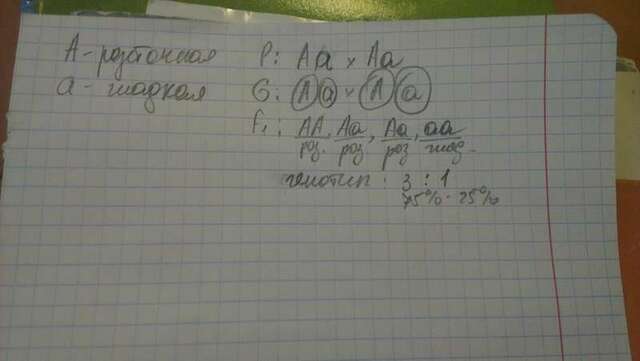 А - розточная
а - гладкая
P: Aa x Aa
G: A a x A a
F₁: AA, Aa, Aa, aa
роз. роз роз глад.
генотип: 3 : 1
75% - 25%